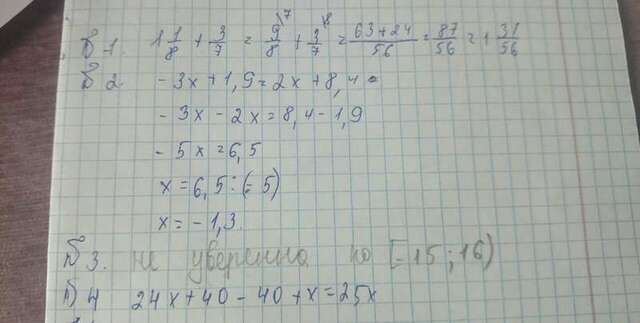 Б 1. 1 1/8 + 3/7 = 9/8 \7 + 3/7 \8 = 63+24/56 = 87/56 = 1 31/56
Б 2. -3x+1,9=2x+8,4
-3x-2x=8,4-1,9
-5x=6,5
x=6,5:(-5)
x=-1,3.
Б 3. не уверенна но [-15;16)
Б 4 24x+40-40+x=25x